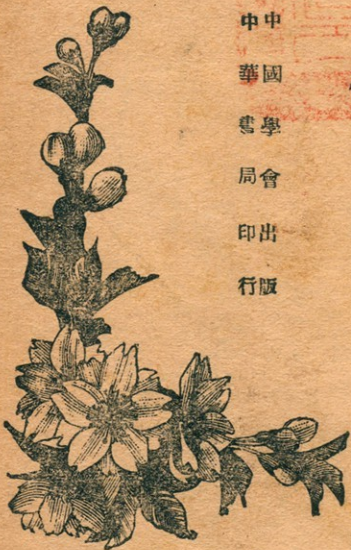 中國學會出版
中華書局印行